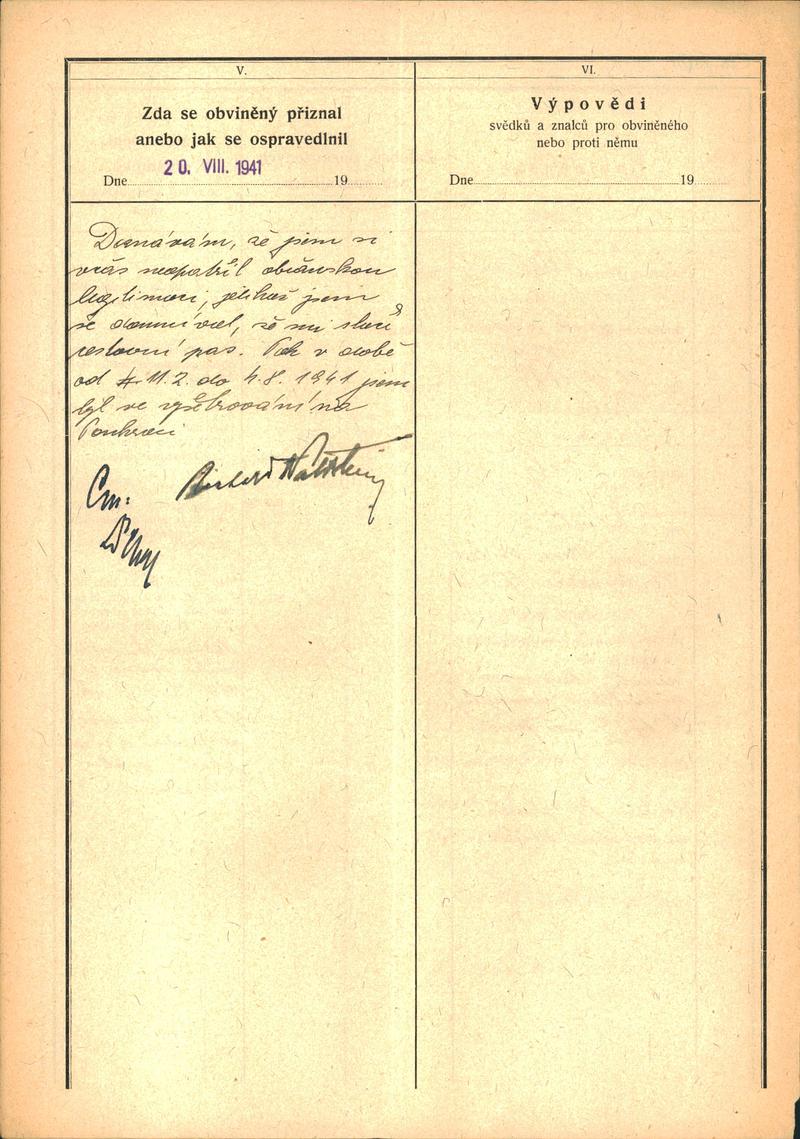 V.
Zda se obviněný přiznal
anebo jak se ospravedlnil
20. VIII. 1941
Dne 19
Doznávám, že jsem si
včas neopatřil občanskou
legitimaci, jelikož jsem
se domníval, že mi stačí
cestovní pas. Pak v době
od 11.2. do 4.8. 1941 jsem
byl ve vyšetrování na
Pankraci
Richard
VI.
Výpovědi
svědků a znalců pro obviněného
nebo proti němu
Dne 19